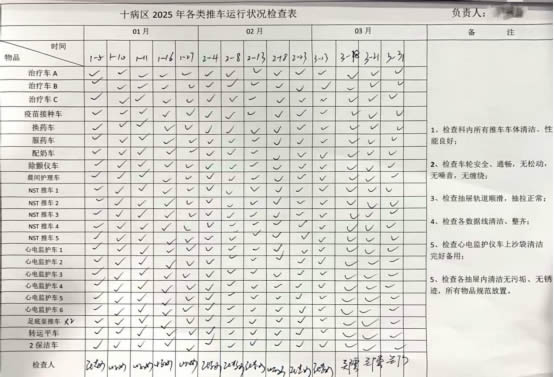 十病区 2025 年各类推车运行状况检查表
负责人:
时间
物品
01 月
02 月
03 月
备 注
1-5 1-10 1-16 1-27 2-4 2-8 2-13 2-18 2-23 3-13 3-21 3-31
治疗车 A
治疗车 B
治疗车 C
疫苗接种车
换药车
服药车
配奶车
除颤仪车
晨间护理车
NST 推车 1
NST 推车 2
NST 推车 3
NST 推车 4
NST 推车 5
心电监护车 1
心电监护车 2
心电监护车 3
心电监护车 4
心电监护车 5
心电监护车 6
足底采推车 x2
转运平车
2 保洁车
检查人
1、检查科内所有推车车体清洁、性
能良好;
2、检查车轮安全、通畅,无松动,
无噪音,无缠绕;
3、检查抽屉轨道顺滑,抽拉正常;
4、检查各数据线清洁、整齐;
5、检查心电监护仪车上沙袋清洁
完好备用;
5、检查各抽屉内清洁无污垢、无锈
迹,所有物品规范放置。